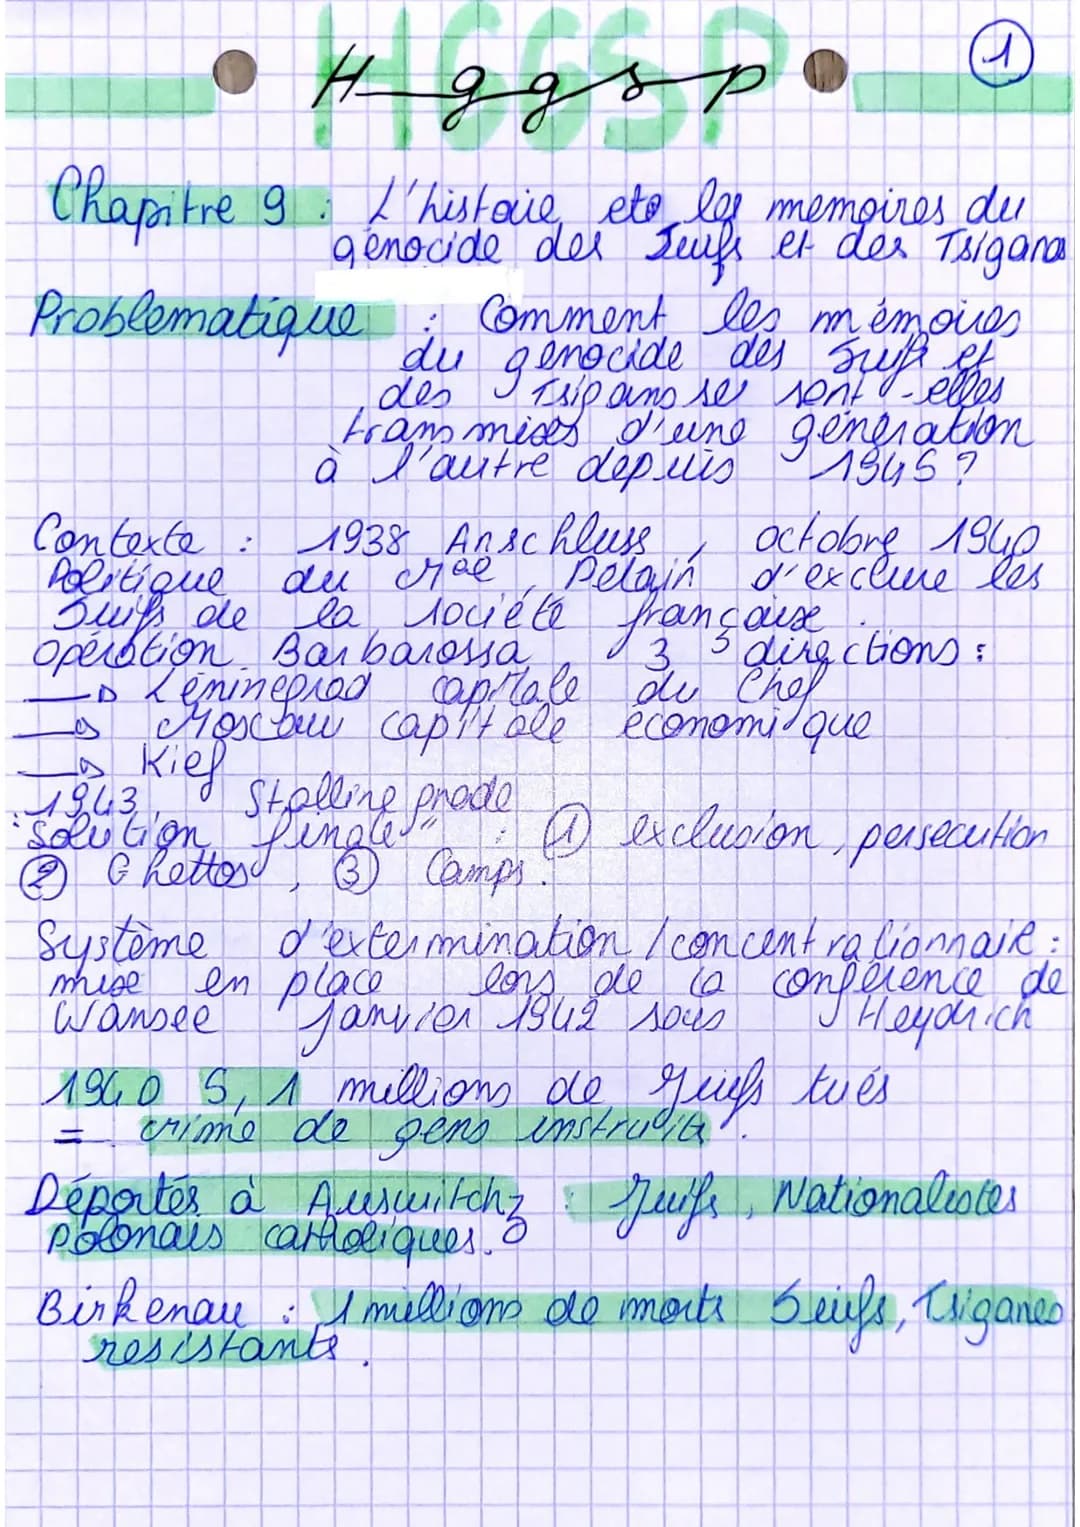 HGGSP
Hggsp
1
Chapitre 9 : L'histoire eto les memoires du
génocide des Juifs et des Tsiganes
Problematique : Comment les mémoires
du genocide des Juifs et
des Tsigans se sont-elles
transmises d'une géneration
à l'autre depuis 1945 ?
Contexte : 1938 Anschluss, octobre 1940
Politique du Mal Petain d'exclure les
Juifs de la société française.
opération Barbarossa 3 directions :
→ Léningrad capitale du Chef
→ Moscou capitale économique
→ Kief
1943 Stalline grade
"Solution finale" : ① exclusion, persecution
② Ghettos, ③ Camps.
Système d'extermination / concentrationnaire :
mise en place lors de la conférence de
Wansee janvier 1942 sous Heydrich
1940 5,1 millions de Juifs tués
= crime de gens instruits.
Déportés à Auswitchz : Juifs, Nationalistes
Polonais catholiques.
Birkenau : 1 millions de morts Juifs, Tsiganes
resistants.